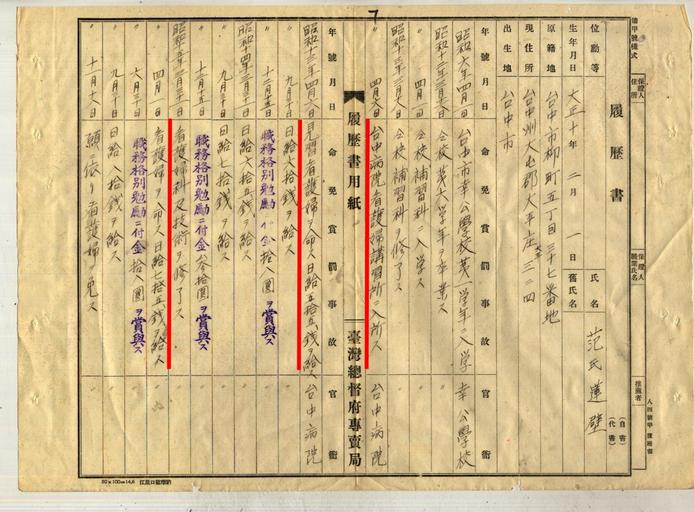 7
履歷書
保證人住所
保證人職業氏名
推薦者
(自書)
(代書)
位勳等 氏名 范氏蓮壁
生年月日 大正十年二月一日 舊氏名
原籍地 台中市柳町五丁目三十七番地
現住所 台中州大屯郡大平庄 三二四
出生地 台中市
年號月日 命免賞罰事故 官衙
昭和六年四月一日 台中市幸公學校第一学年ニ入学 幸公學校
昭和十二年三月 日 仝校第六学年ヲ卒業ス 〃
〃 四月一日 仝校補習科ニ入学ス 〃
昭和十三年三月 日 仝校補習科ヲ修了ス 〃
〃 四月六日 台中病院看護婦講習所ニ入所ス 台中病院
履歷書用紙 臺灣總督府專賣局
年號月日 命免賞罰事故 官衙
昭和十三年四月六日 見習看護婦ヲ命ス日給五拾五錢ヲ給ス 台中病院
〃 九月十日 日給六拾錢ヲ給ス 〃
〃 十二月十五日 職務格別勉勵ニ付金拾八圓ヲ賞與ス 〃
昭和十四年三月三十一日 日給六拾五錢ヲ給ス 〃
〃 九月三十日 日給七拾錢ヲ給ス 〃
〃 十二月十五日 職務格別勉勵ニ付金參拾圓ヲ賞與ス 〃
昭和十五年三月三十一日 看護婦科及技術ヲ修了ス 〃
〃 四月一日 看護婦ヲ命ス日給七拾五錢ヲ給ス 〃
〃 六月十日 職務格別勉勵ニ付金拾 圓ヲ賞與ス 〃
〃 九月十日 日給八拾錢ヲ給ス 〃
〃 十一月十八日 願ニ依リ看護婦ヲ免ス 〃